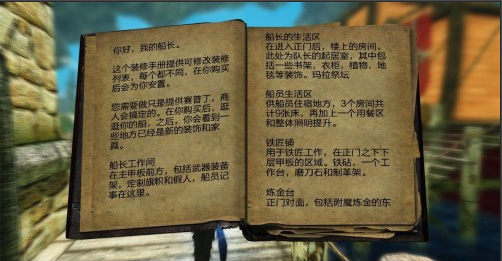 你好，我的船长。
这个装修手册提供可修改装修
列表，每个都不同，在你购买
后会为你安置。
您需要做只是提供赛普丁，商
人会搞定的。在你购买后，逛
逛你的船，之后，你会看到一
些地方已经是新的装饰和家
具。
船长工作间
在主甲板前方，包括武器装备
架，定制旗帜和假人，船员记
事在这里。
船长的生活区
在进入正门后，楼上的房间。
此处为队长的起居室，其中包
括一些书架，衣柜，植物，地
毯等装饰。玛拉祭坛
船员生活区
供船员住宿地方，3个房间共
计9张床，再加上一个用餐区
和整体照明提升。
铁匠铺
用于铁匠工作，在正门之下下
层甲板的区域。铁砧，一个工
作台，磨刀石和制革架。
炼金台
正门对面，包括附魔炼金的东